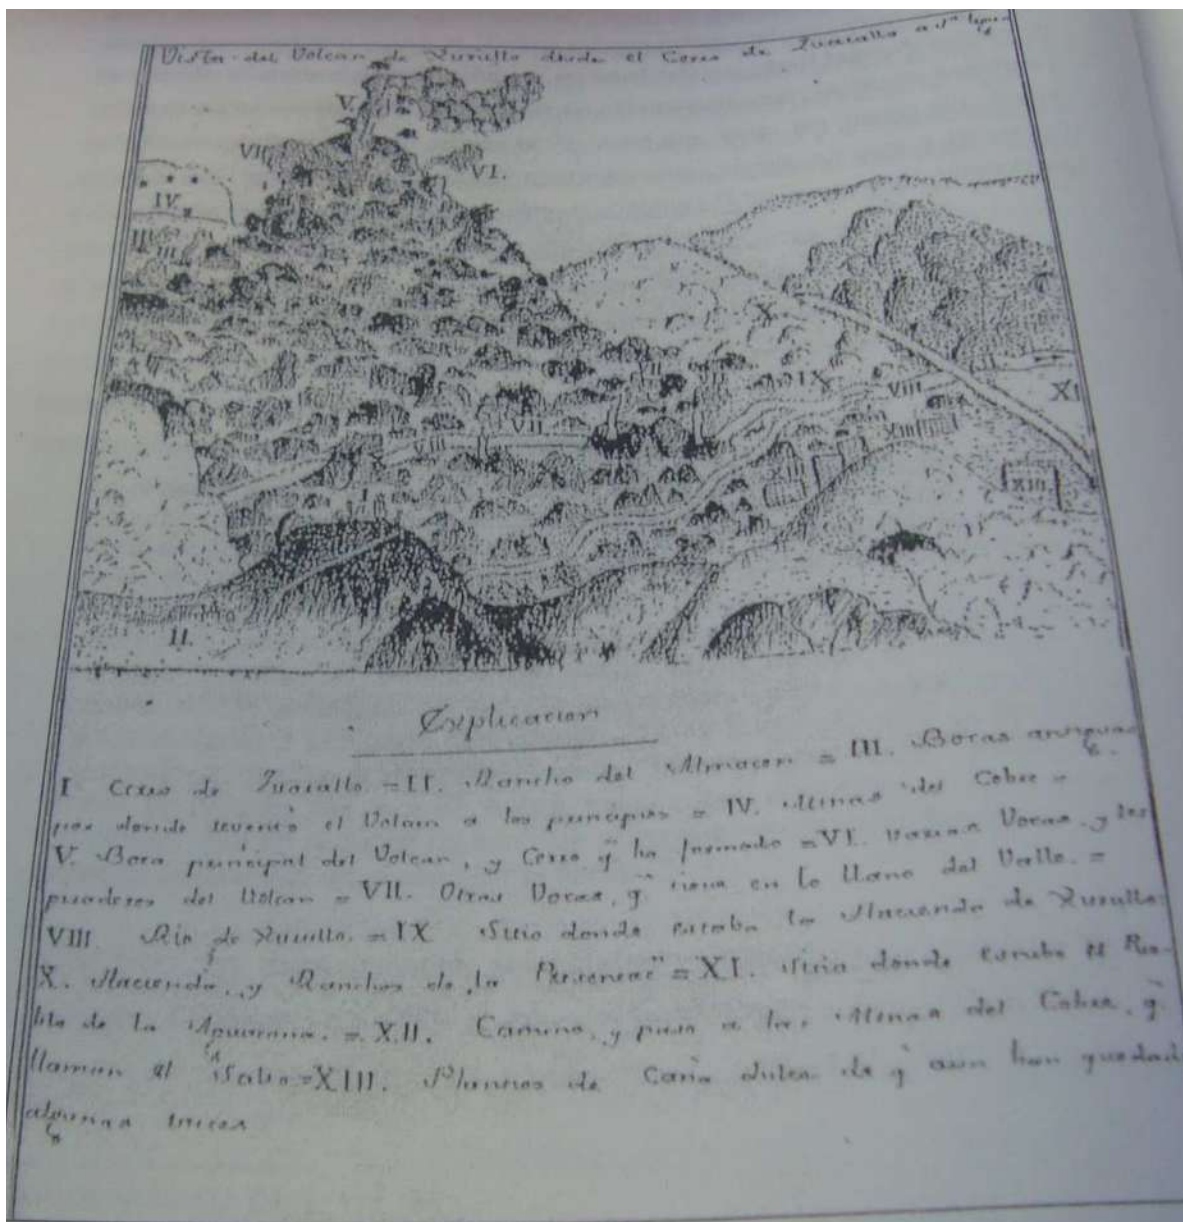 Vista del Volcan de Xurullo desde el Cerro de
V.
VII
VI.
IV.
III
III
X
VII
IX
VIII
XI
VII
VIII
XIII
I
XIII.
II.
Explicacion
I Cerro de = II. Rancho del Almacen = III. Bocas antiguas
por donde revento el Volcan a los principios = IV. Minas del Cobre =
V. Boca principal del Volcan, y Cerro q.e ha formado = VI. varias Vocas, y res
piraderos del Volcan = VII. Otras Vocas, q.e tiene en lo llano del Valle. =
VIII Rio de Xurullo. = IX Sitio donde estaba la Hacienda de Xurullo.
X. Hacienda, y Ranchos de la = XI. Sitio donde estubo el Pue-
blo de la = XII. Camino, y paso a las Minas del Cobre, q.e
llaman el = XIII. de Caña dulce de q.e aun han quedad
algunas